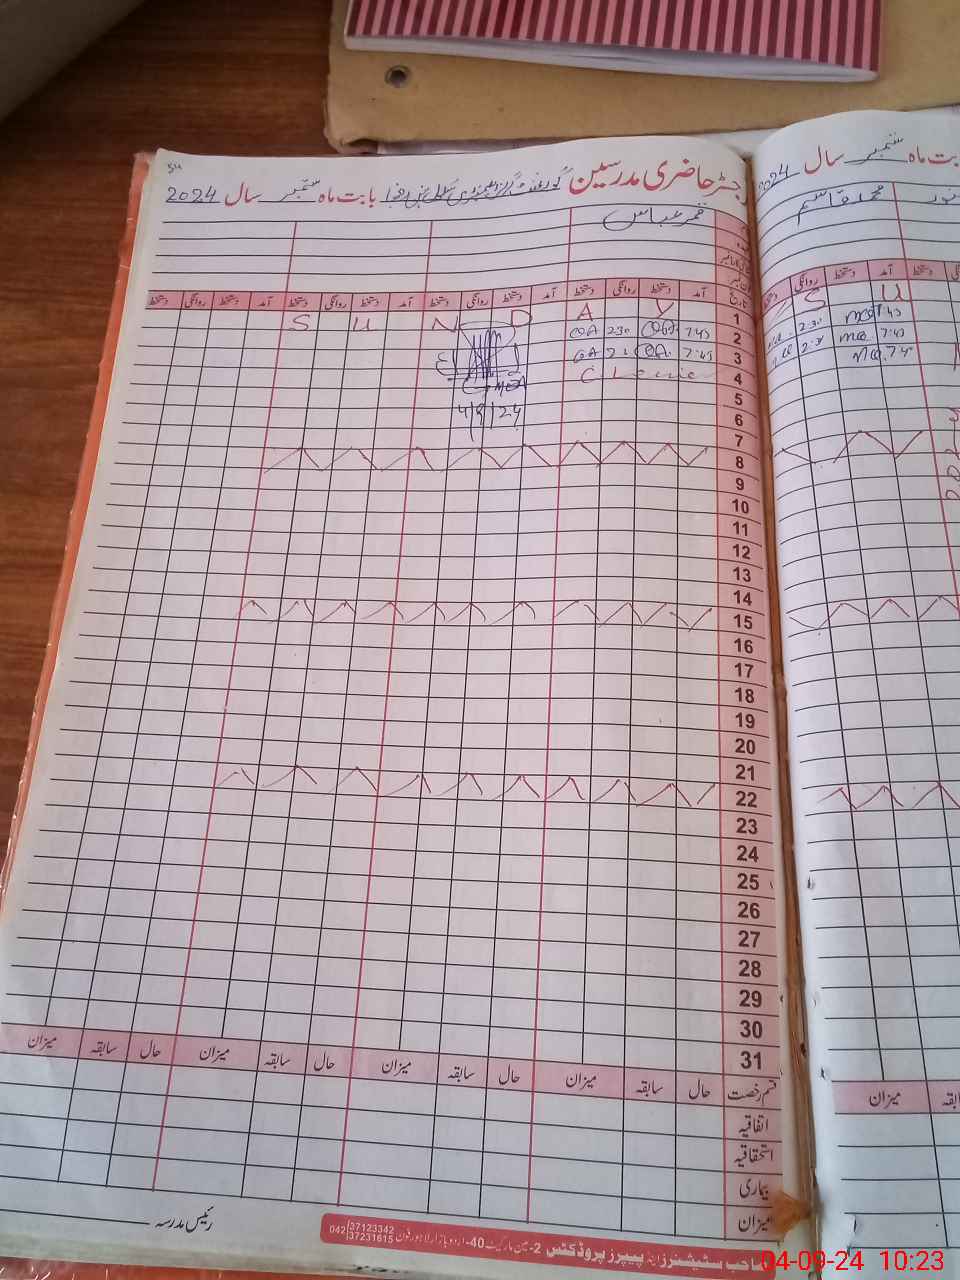 رجسٹر حاضری مدرسین گورنمنٹ گرلز بابت ماہ ستمبر سال 2024
قمر عباس
تاریخ آمد دستخط روانگی دستخط آمد دستخط روانگی دستخط آمد دستخط روانگی دستخط آمد دستخط روانگی دستخط
1 S U N D A Y
2 7:45 QA 2:30 QA
3 7:45 QA QA
4
MEA
4/9/24
5
6
7
8
9
10
11
12
13
14
15
16
17
18
19
20
21
22
23
24
25
26
27
28
29
30
31
قسم رخصت حال سابقہ میزان حال سابقہ میزان حال سابقہ میزان حال سابقہ میزان
اتفاقیہ
استحقاقیہ
بیماری
میزان
رئیس مدرسہ
صاحب سٹیشنرز اینڈ پیپرز پروڈکٹس 2-مین مارکیٹ 40-اردو بازار لاہور فون 042 37123342 37231615
بابت ماہ ستمبر سال 2024
محمد قاسم
آمد دستخط روانگی دستخط
S U
7:45 MQ 2:30
7:45 MQ
MQ
میزان
04-09-24 10:23